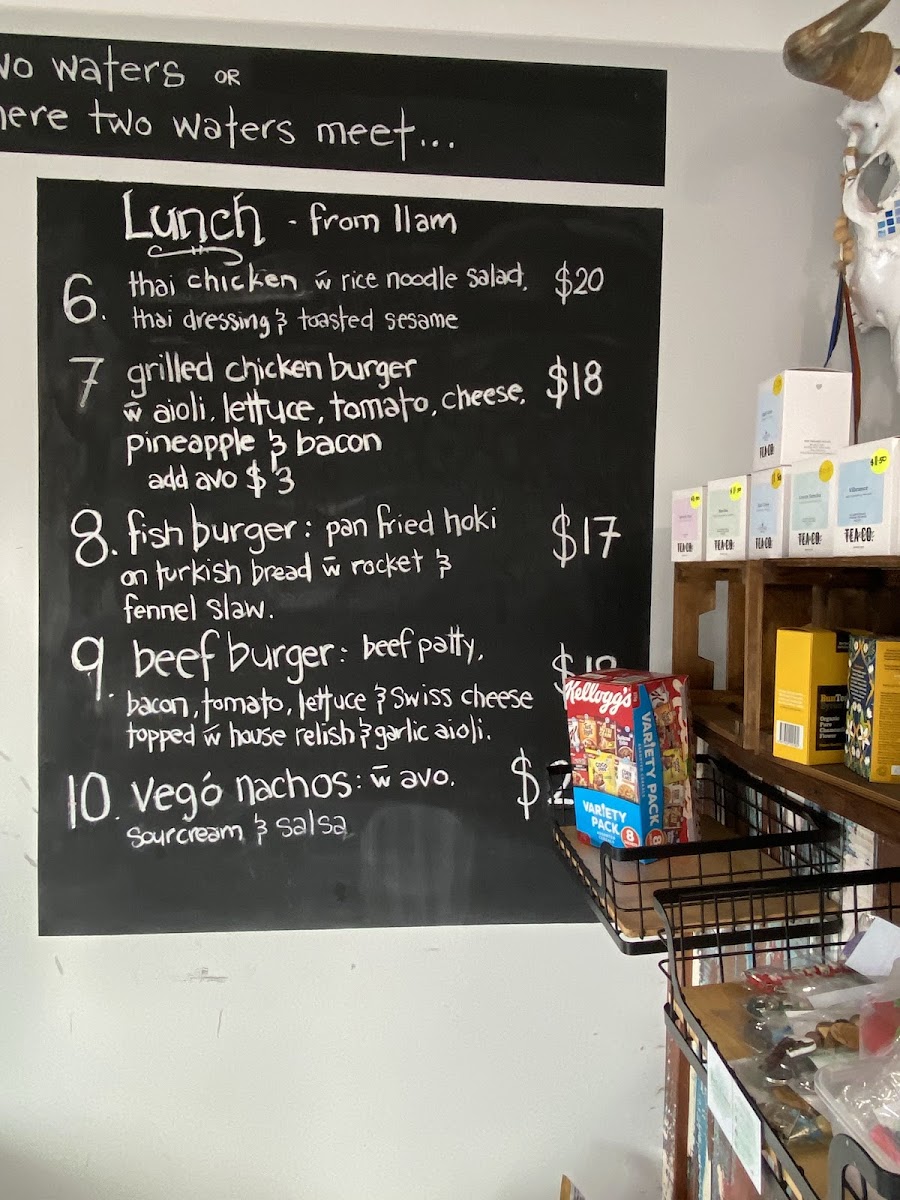 waters OR
two waters meet...
Lunch - from 11am
6. thai chicken w̄ rice noodle salad. $20
thai dressing & toasted sesame
7 grilled chicken burger $18
w̄ aioli, lettuce, tomato, cheese,
pineapple & bacon
add avo $3
8. fish burger: pan fried hoki $17
on turkish bread w̄ rocket &
fennel slaw.
9. beef burger: beef patty,
bacon, tomato, lettuce & Swiss cheese
topped w̄ house relish & garlic aioli.
10. vegó nachos: w̄ avo.
sour cream & salsa
Kellogg's
VARIETY PACK
VARIETY
PACK
8
$1.50
TEA CO.
TEA CO.
TEA CO.
TEA CO.
TEA CO.
TEA CO.
Organic
Pure